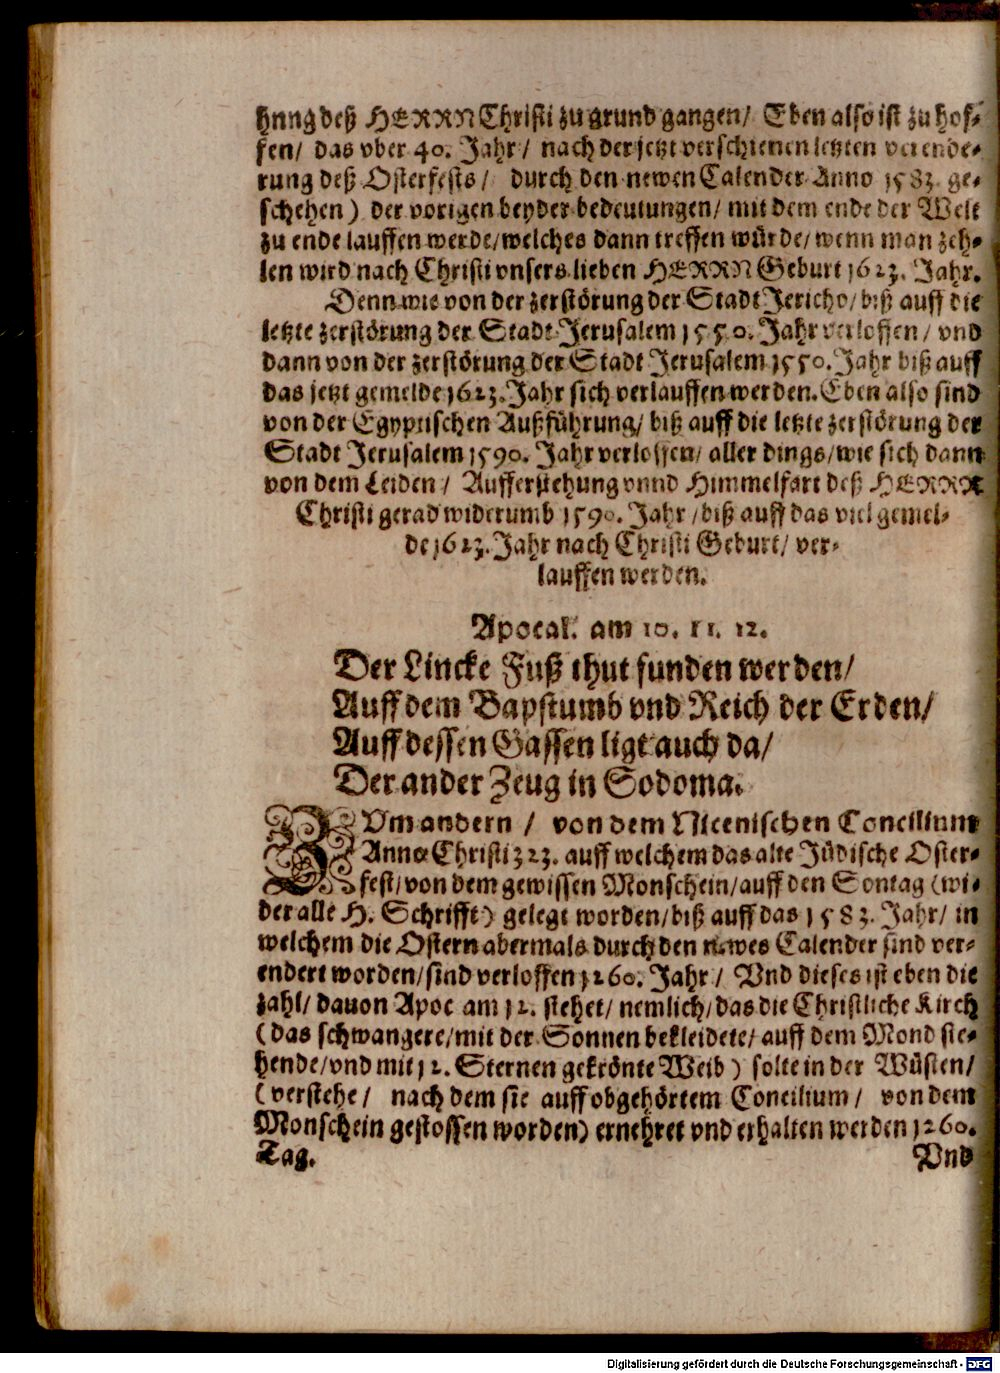 hung deß HERRN Christi zu grund gangen/ Eben also ist zu hof-
fen/ das vber 40. Jahr/ nach der jetzt verschienen letzten verende-
rung deß Osterfests/ durch den newen Calender Anno 1583. ge-
schehen) der vorigen beyder bedeutungen/ mit dem ende der Welt
zu ende lauffen werde/welches dann treffen würde/wenn man zeh-
len wird nach Christi vnsers lieben HERRN Geburt 1623. Jahr.
Denn wie von der zerstörung der Stadt Jericho/biß auff die
letzte zerstörung der Stadt Jerusalem 1550. Jahr verloffen/ vnd
dann von der zerstörung der Stadt Jerusalem 1550. Jahr biß auff
das jetzt gemelde 1623. Jahr sich verlauffen werden. Eben also sind
von der Egyptischen Außführung/ biß auff die letzte zerstörung der
Stadt Jerusalem 1590. Jahr verloffen/ aller dings/wie sich dann
von dem Leiden/ Aufferstehung vnnd Himmelfart deß HERRN
Christi gerad widerumb 1590. Jahr/biß auff das viel gemel-
de 1623. Jahr nach Christi Geburt/ ver-
lauffen werden.
Apocal. am 10. 11. 12.
Der Lincke Fuß thut funden werden/
Auff dem Bapstumb vnd Reich der Erden/
Auff dessen Gassen ligt auch da/
Der ander Zeug in Sodoma.
ZVm andern/ von dem Nicenischen Concilium
Anno Christi 323. auff welchem das alte Jüdische Oster-
fest/von dem gewissen Monschein/auff den Sontag (wi-
der alle H. Schrifft) gelegt worden/biß auff das 1583. Jahr/ in
welchem die Ostern abermals durch den newes Calender sind ver-
endert worden/sind verloffen 1260. Jahr/ Vnd dieses ist eben die
zahl/ dauon Apoc am 12. stehet/ nemlich/das die Christliche Kirch
(das schwangere/mit der Sonnen bekleidete/auff dem Mond ste-
hende/vnd mit 12. Sternen gekrönte Weib) solte in der Wüsten/
(verstehe/ nach dem sie auff obgehörtem Concilium/ von dem
Monschein gestossen worden) ernehret vnd erhalten werden 1260.
Tag. Vnd
Digitalisierung gefördert durch die Deutsche Forschungsgemeinschaft - DFG